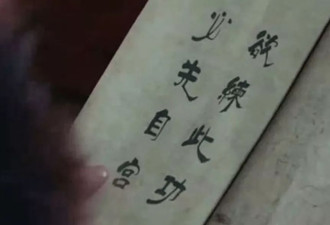 欲練此功
必先自宮